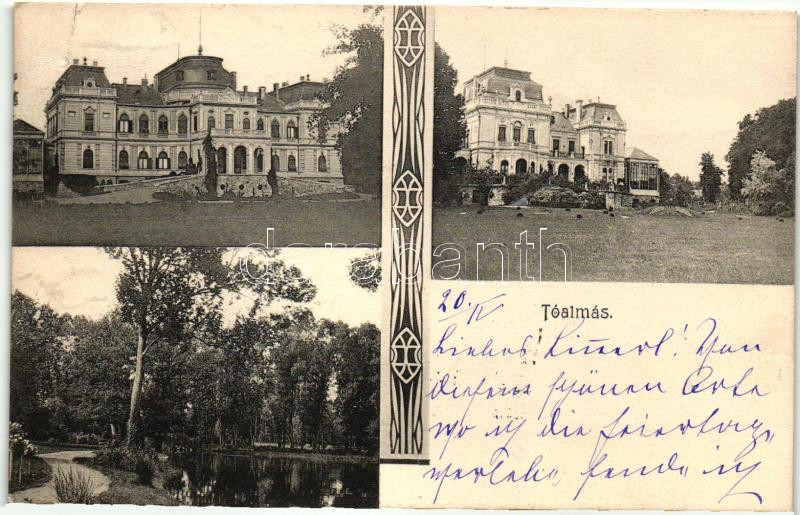 darabanth
20./IV
Tóalmás.
Liebes ! Von
diesem schönen Orte
wo ich die Feiertage
verlebe, sende ich